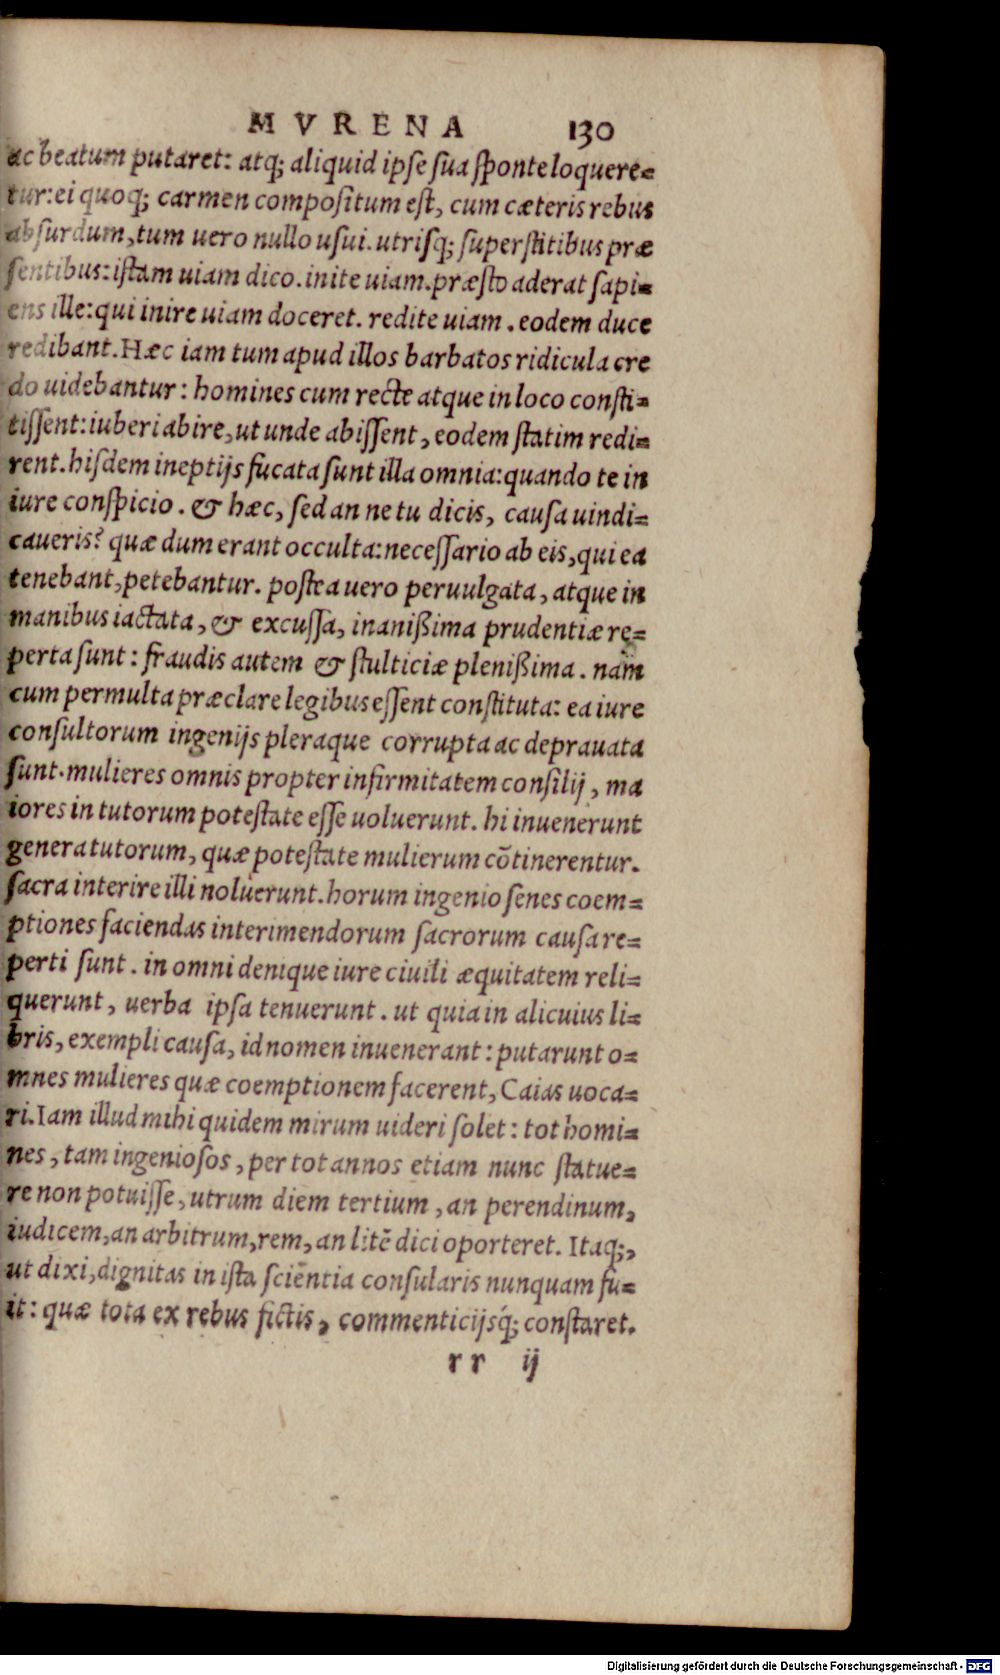 MVRENA 130
ac beatum putaret: atq; aliquid ipse sua sponte loquere=
tur: ei quoq; carmen compositum est, cum cæteris rebus
absurdum, tum uero nullo usui. utrisq; superstitibus præ
sentibus: istam uiam dico. inite uiam. præsto aderat sapi=
ens ille: qui inire uiam doceret. redite uiam. eodem duce
redibant. Hæc iam tum apud illos barbatos ridicula cre
do uidebantur: homines cum recte atque in loco consti=
tissent: iuberi abire, ut unde abissent, eodem statim redi=
rent. hisdem ineptijs fucata sunt illa omnia: quando te in
iure conspicio. & hæc, sed an ne tu dicis, causa uindi=
caueris? quæ dum erant occulta: necessario ab eis, qui ea
tenebant, petebantur. postea uero peruulgata, atque in
manibus iactata, & excussa, inanißima prudentiæ re=
perta sunt: fraudis autem & stulticiæ plenißima. nam
cum permulta præclare legibus essent constituta: ea iure
consultorum ingenijs pleraque corrupta ac deprauata
sunt. mulieres omnis propter infirmitatem consilij, ma
iores in tutorum potestate esse uoluerunt. hi inuenerunt
genera tutorum, quæ potestate mulierum cōtinerentur.
sacra interire illi noluerunt. horum ingenio senes coem=
ptiones faciendas interimendorum sacrorum causa re=
perti sunt. in omni denique iure ciuili æquitatem reli=
querunt, uerba ipsa tenuerunt. ut quia in alicuius li=
bris, exempli causa, id nomen inuenerant: putarunt o=
mnes mulieres quæ coemptionem facerent, Caias uoca=
ri. Iam illud mihi quidem mirum uideri solet: tot homi=
nes, tam ingeniosos, per tot annos etiam nunc statue=
re non potuisse, utrum diem tertium, an perendinum,
iudicem, an arbitrum, rem, an litē dici oporteret. Itaq;,
ut dixi, dignitas in ista scientia consularis nunquam fu=
it: quæ tota ex rebus fictis, commenticijsq́; constaret.
rr ij
Digitalisierung gefördert durch die Deutsche Forschungsgemeinschaft - DFG